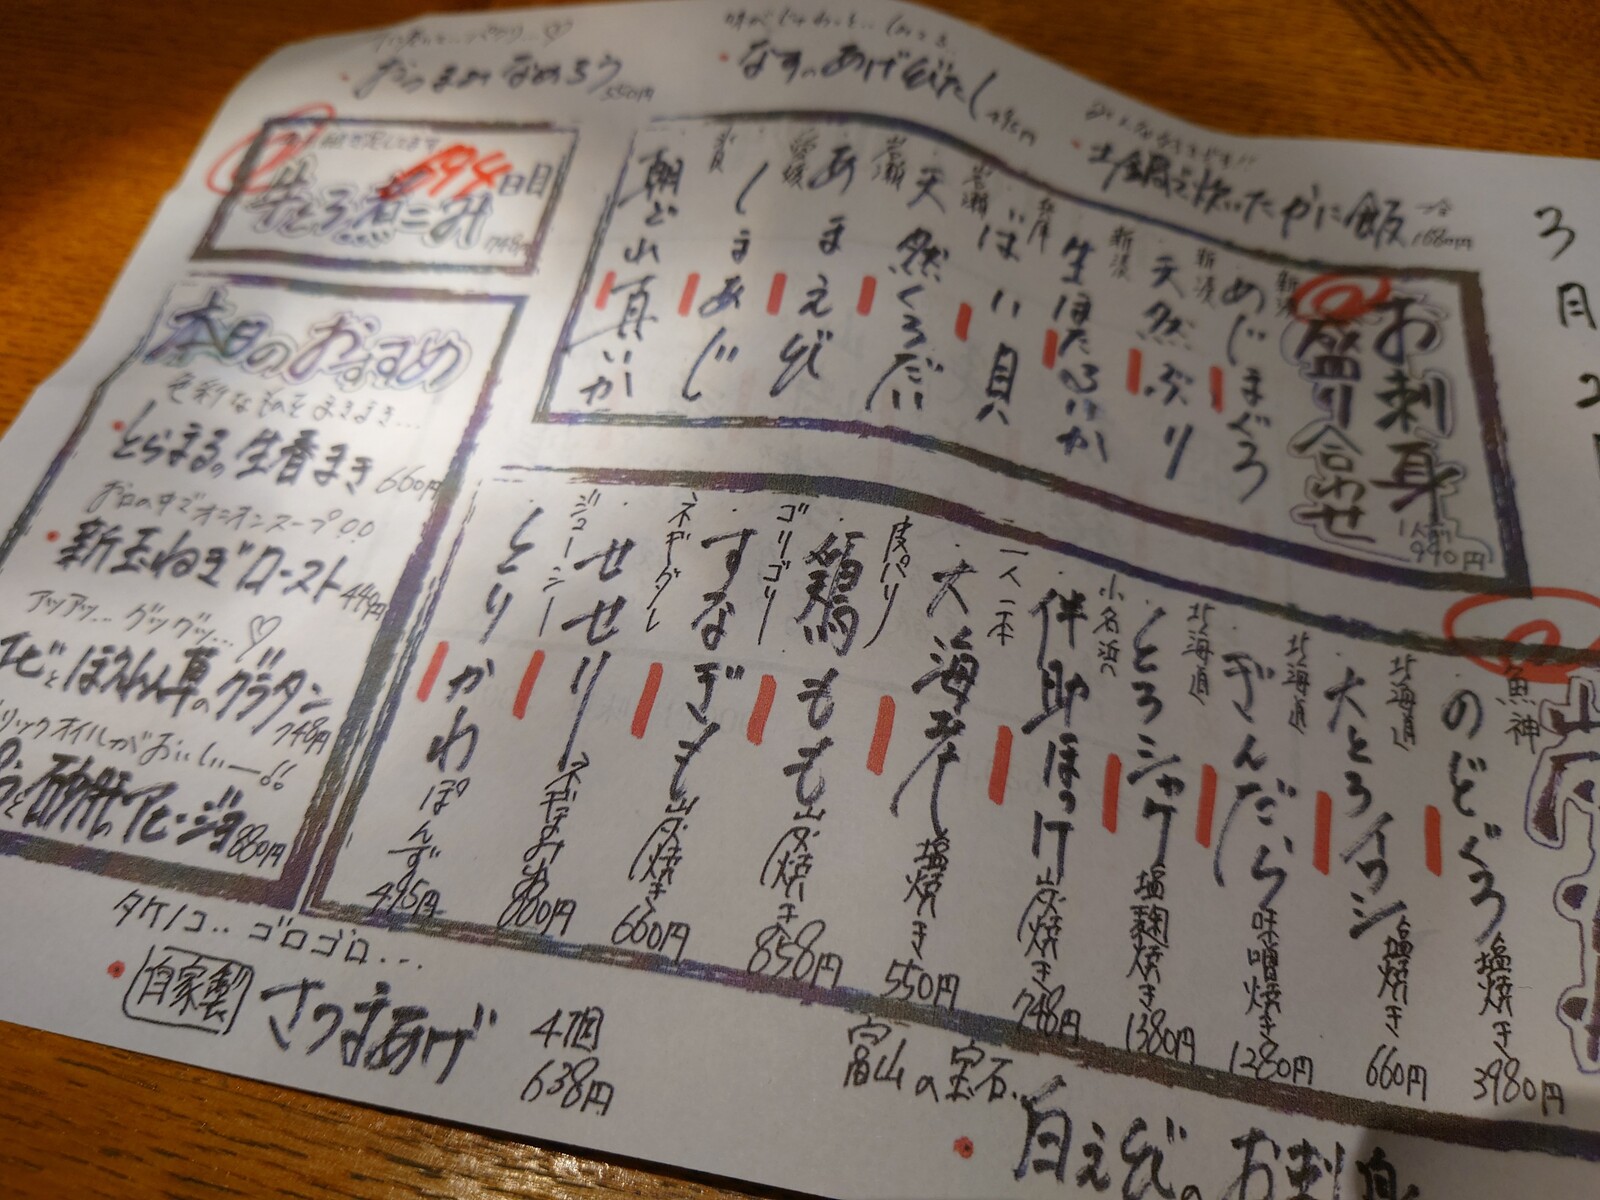 おつまみなめろう 550円
なすのあげびたし
土鍋で炊いたかに飯 一合 1680円
3月
694日目
牛とろ煮こみ 748円
お刺身
盛り合わせ
1人前 990円
めじまぐろ
新潟
天然ぶり
新潟
生ほたるいか
兵庫
ばい貝
岩瀬
天然くろだい
岩瀬
あまえび
しまあじ
愛媛
朝どれ真いか
本日のおすすめ
・とらまるの生春まき 660円
お口の中でオニオンスープ○○
・新玉ねぎロースト 449円
アツアツ…グツグツ…♡
エビとほうれん草のグラタン 748円
リックオイルがおいしいー!!
砂肝のアヒージョ 880円
魚神
のどぐろ 塩焼き 3980円
北海道
大とろイワシ 塩焼き 660円
北海道
ぎんだら 味噌焼き 1280円
北海道
とろシャケ 塩麹焼き 1380円
小名浜の
伴助ほっけ 炭焼き 748円
一人一本
大海老 塩焼き 550円
皮パリ
鶏もも 炭焼き 858円
ゴリゴリ
すなぎも 炭焼き 660円
ネギダレ
せせり
ジューシー
とりかわ ぽんず 495円
タケノコ..ゴロゴロ...
・自家製 さつまあげ 4個 638円
富山の宝石
・白えびのお刺身